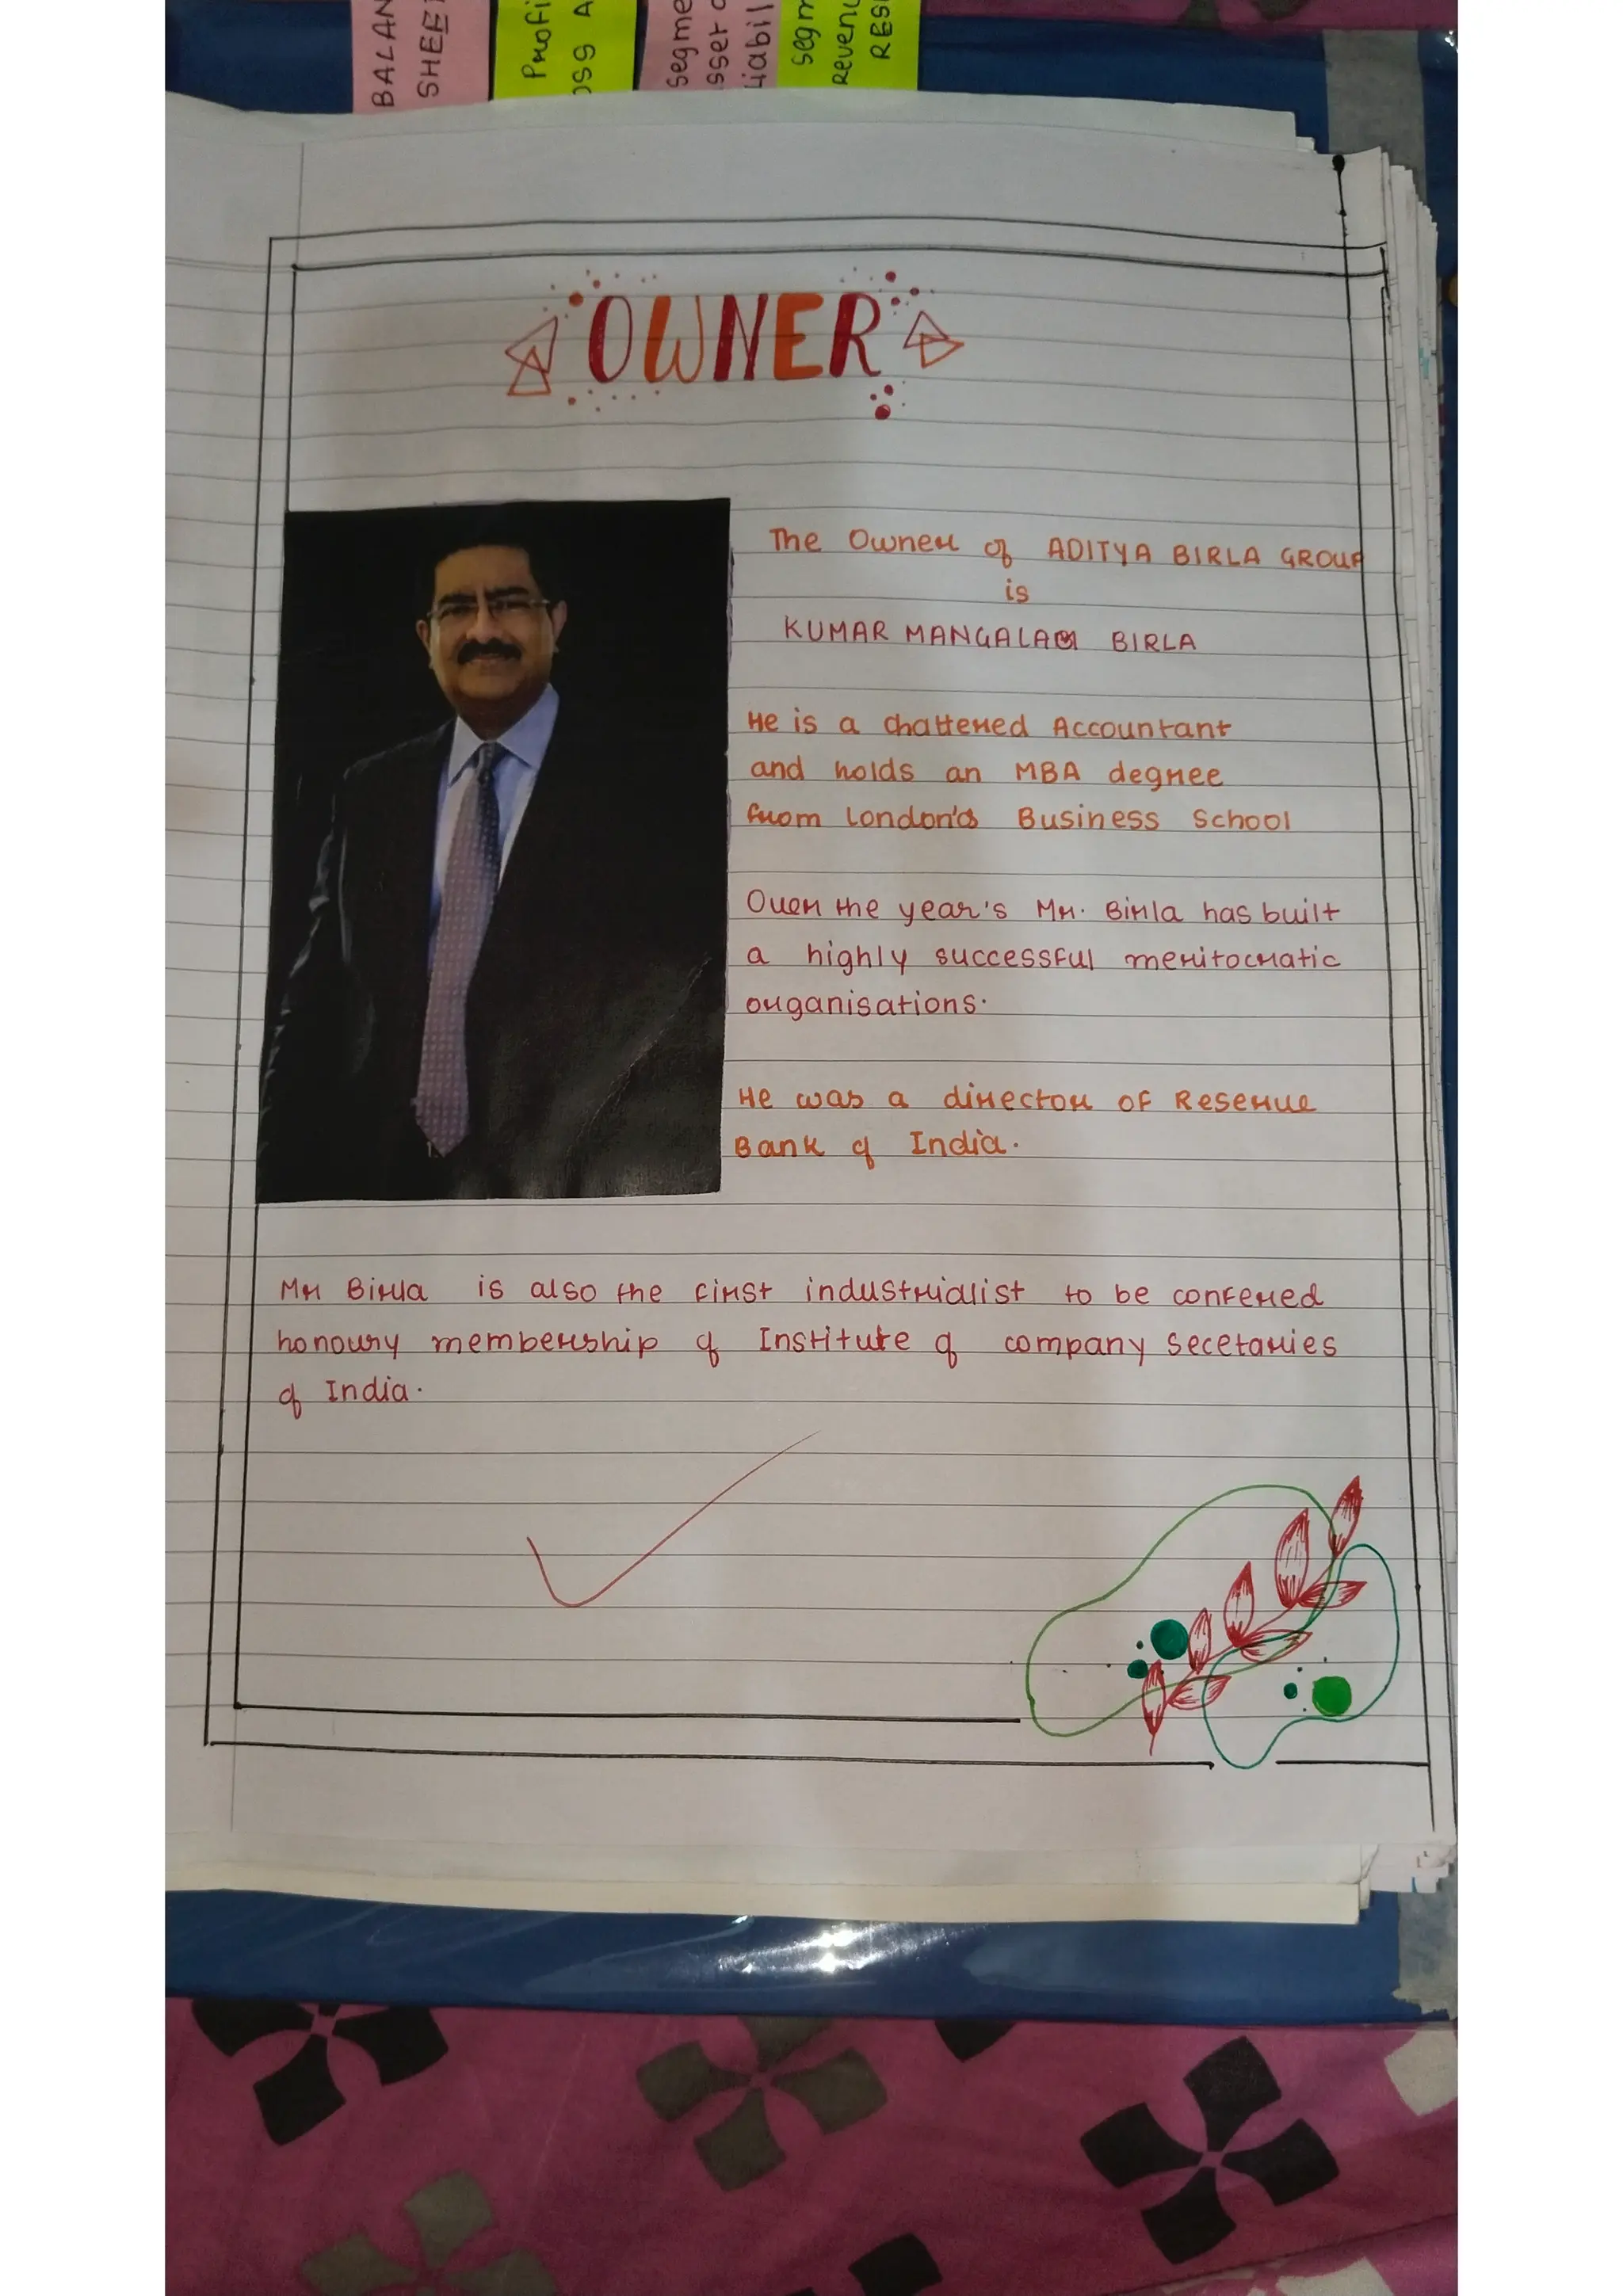 BALAN
SHEE
Profi
OSS A
Segme
sset
iabil
Segm
reven
RES
OWNER
The Owner of ADITYA BIRLA GROUP
is
KUMAR MANGALAM BIRLA
He is a chattered Accountant
and holds an MBA degree
from London's Business School
Over the year's Mr. Birla has built
a highly successful meritocratic
organisations.
He was a director of Reserve
Bank of India.
Mr Birla is also the first industrialist to be confered
honoury membership of Institute of company secetaries
of India.